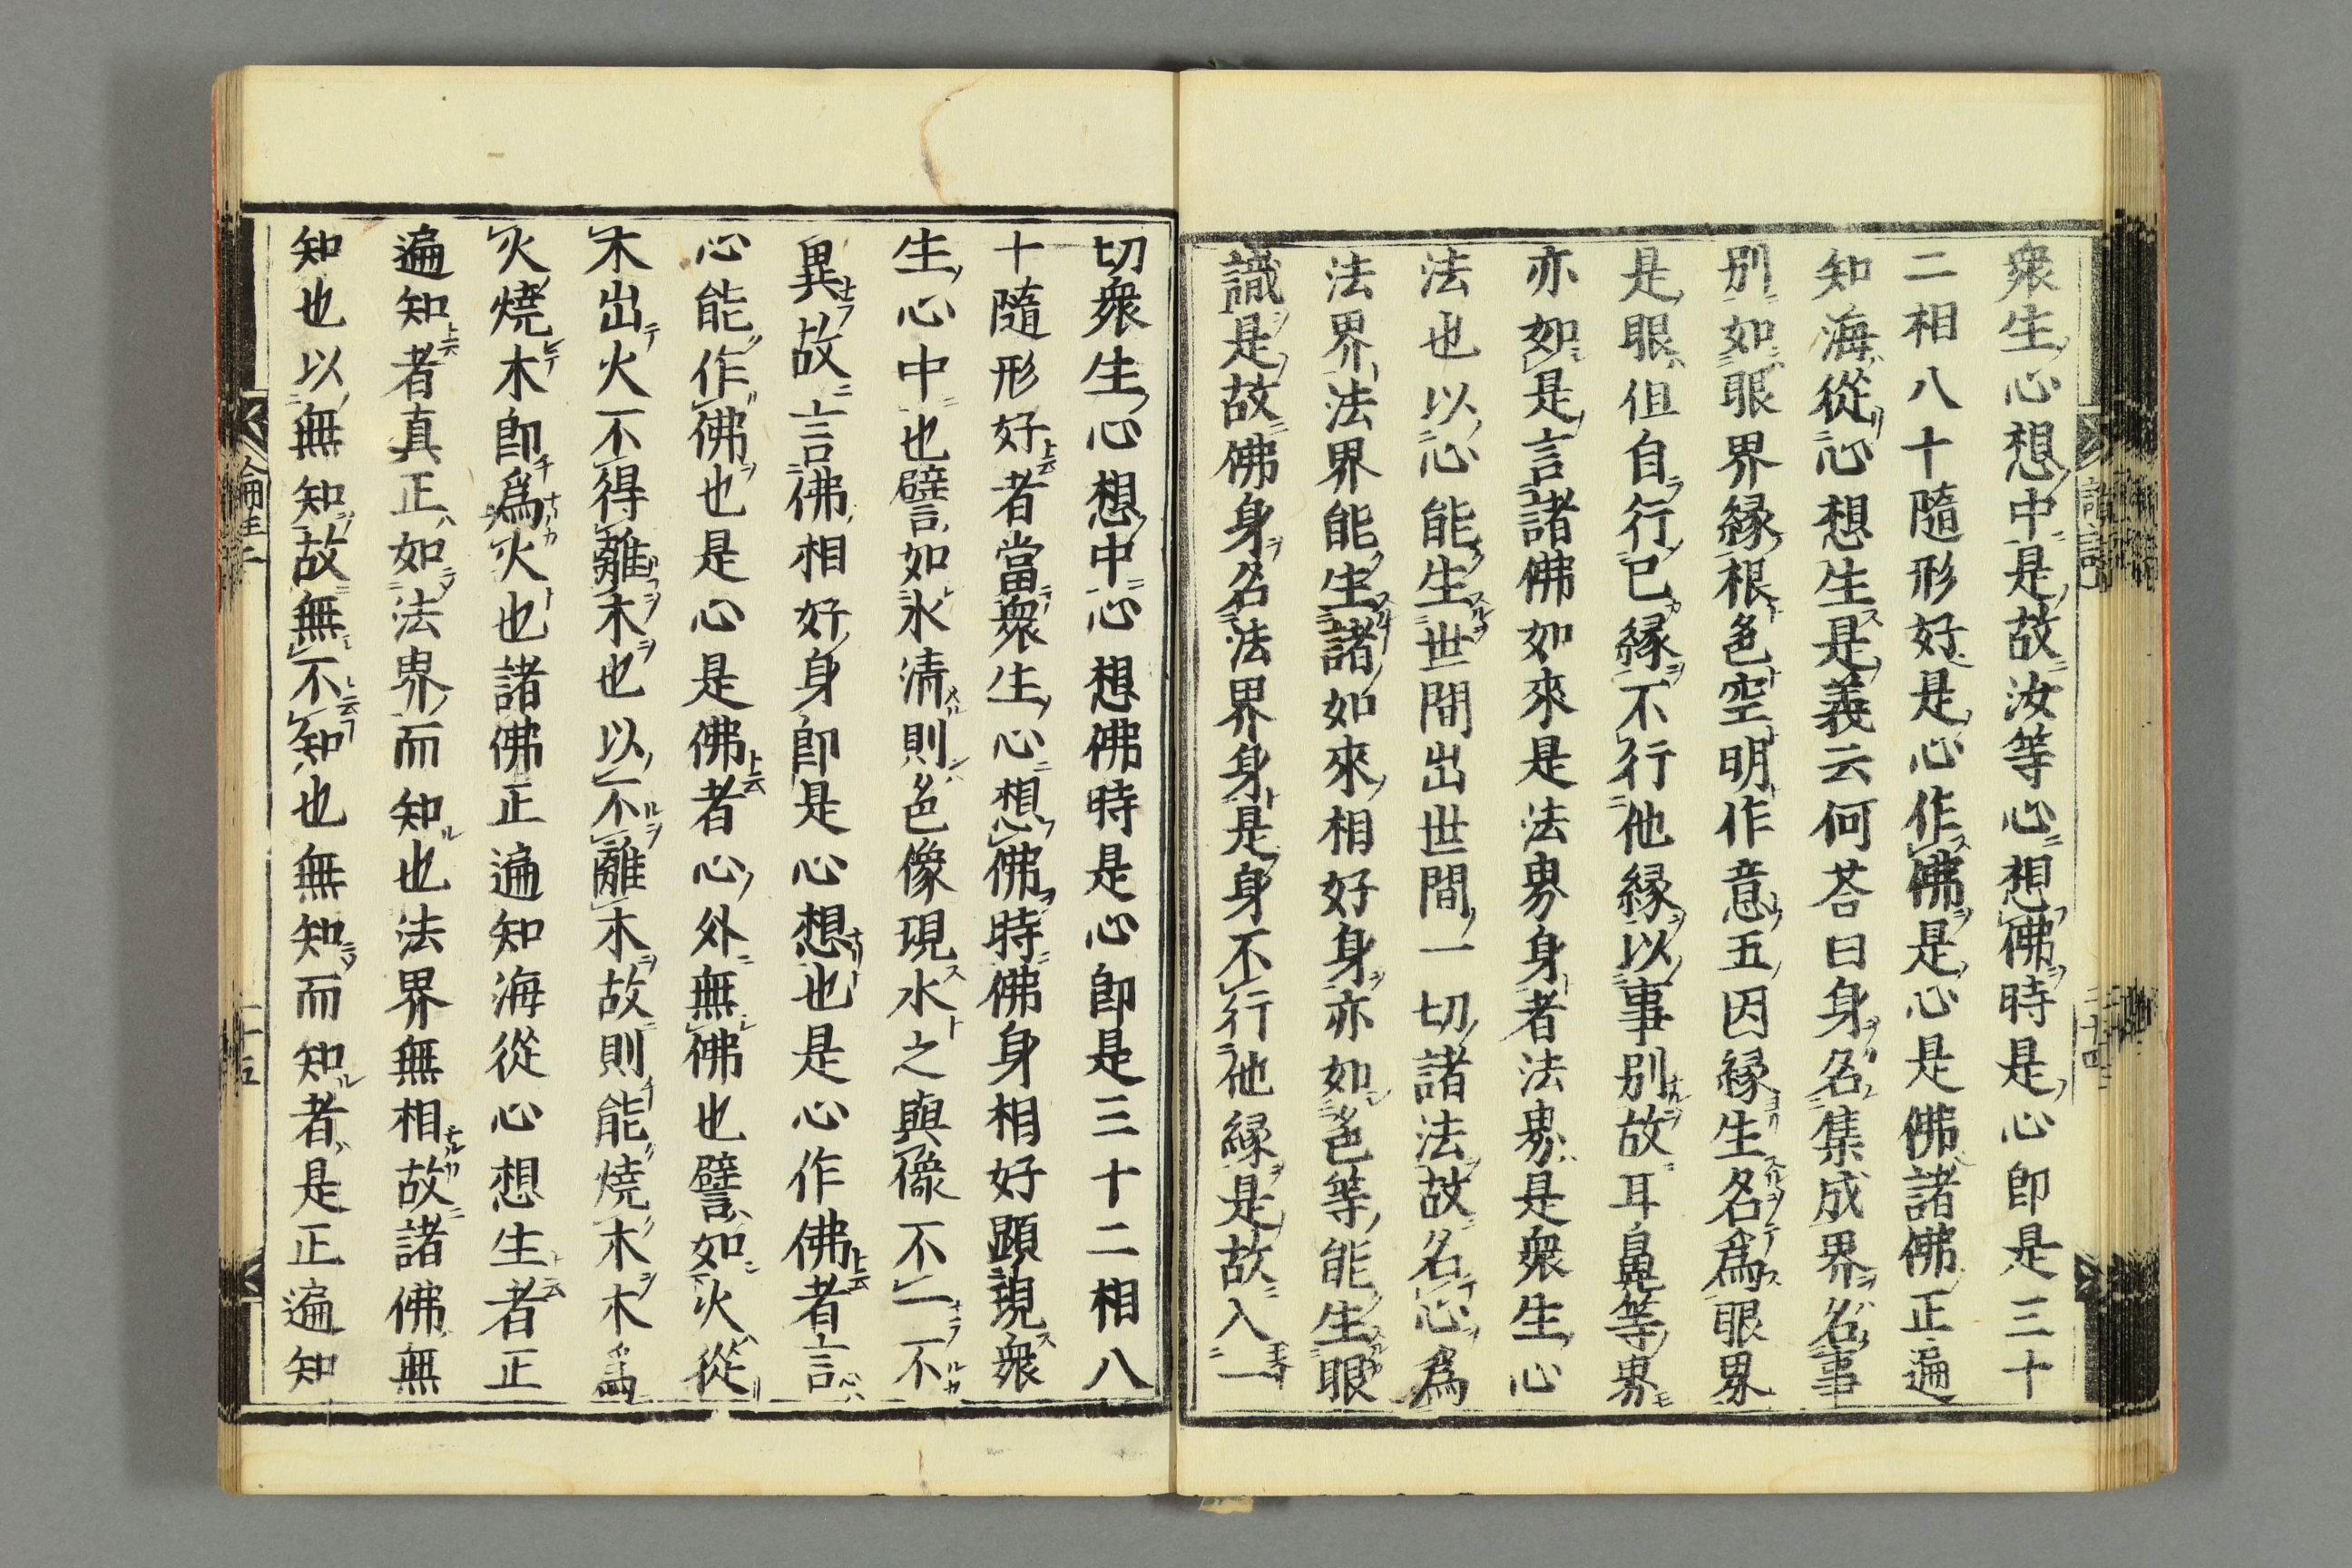 衆生心想中是故汝等心想佛時是心即是三十
二相八十隨形好是心作佛是心是佛諸佛正遍
知海從心想生是義云何荅曰身名集成界名事
别如眼界縁根色空明作意五因縁生名爲眼界
是眼但自行已縁不行他縁以事别故耳鼻等界
亦如是言諸佛如來是法界身者法界是衆生心
法也以心能生世間出世間一切諸法故名心爲
法界法界能生諸如來相好身亦如色等能生眼
識是故佛身名法界身是身不行他縁是故入一
切衆生心想中心想佛時是心即是三十二相八
十隨形好者當衆生心想佛時佛身相好顕現衆
生心中也譬如水清則色像現水之與像不一不
異故言佛相好身即是心想也是心作佛者言
心能作佛也是心是佛者心外無佛也譬如火從
木出火不得離木也以不離木故則能燒木木爲
火燒木即爲火也諸佛正遍知海從心想生者正
遍知者真正如法界而知也法界無相故諸佛無
知也以無知故無不知也無知而知者是正遍知